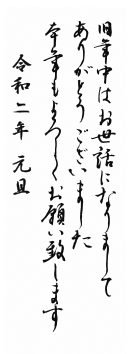 旧年中はお世話になりまして
ありがとうございました
本年もよろしくお願い致します
令和二年 元旦